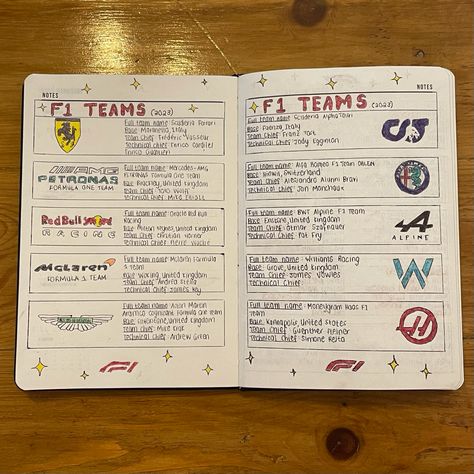 NOTES
F1 TEAMS (2023)
Full team name: Scuderia Ferrari
Base: Maranello, Italy
Team Chief: Frédéric Vasseur
Technical Chief: Enrico Cardile/
Enrico Gualtieri
AMG
PETRONAS
FORMULA ONE TEAM
Full team name: Mercedes-AMG
Petronas Formula One Team
Base: Brackley, United Kingdom
Team Chief: Toto Wolff
Technical Chief: Mike Elliott
Red Bull
RACING
Full team name: Oracle Red Bull
Racing
Base: Milton Keynes, United Kingdom
Team Chief: Christian Horner
Technical Chief: Pierre Waché
McLaren
FORMULA 1 TEAM
Full team name: McLaren Formula
1 Team
Base: Woking, United Kingdom
Team Chief: Andrea Stella
Technical Chief: James Key
Full team name: Aston Martin
Aramco Cognizant Formula One Team
Base: Silverstone, United Kingdom
Team Chief: Mike Krack
Technical Chief: Andrew Green
F1
NOTES
F1 TEAMS (2023)
Full team name: Scuderia AlphaTauri
Base: Faenza, Italy
Team Chief: Franz Tost
Technical Chief: Jody Egginton
Full team name: Alfa Romeo F1 Team
Base: Hinwil, Switzerland
Team Chief: Alessandro Alunni Bravi
Technical Chief: Jan Monchaux
Full team name: BWT Alpine F1 Team
Base: Enstone, United Kingdom
Team Chief: Otmar Szafnauer
Technical Chief: Pat Fry
ALPINE
Full team name: Williams Racing
Base: Grove, United Kingdom
Team Chief: James Vowles
Technical Chief:
Full team name: Moneygram Haas F1
Team
Base: Kannapolis, United States
Team Chief: Guenther Steiner
Technical Chief: Simone Resta
F1